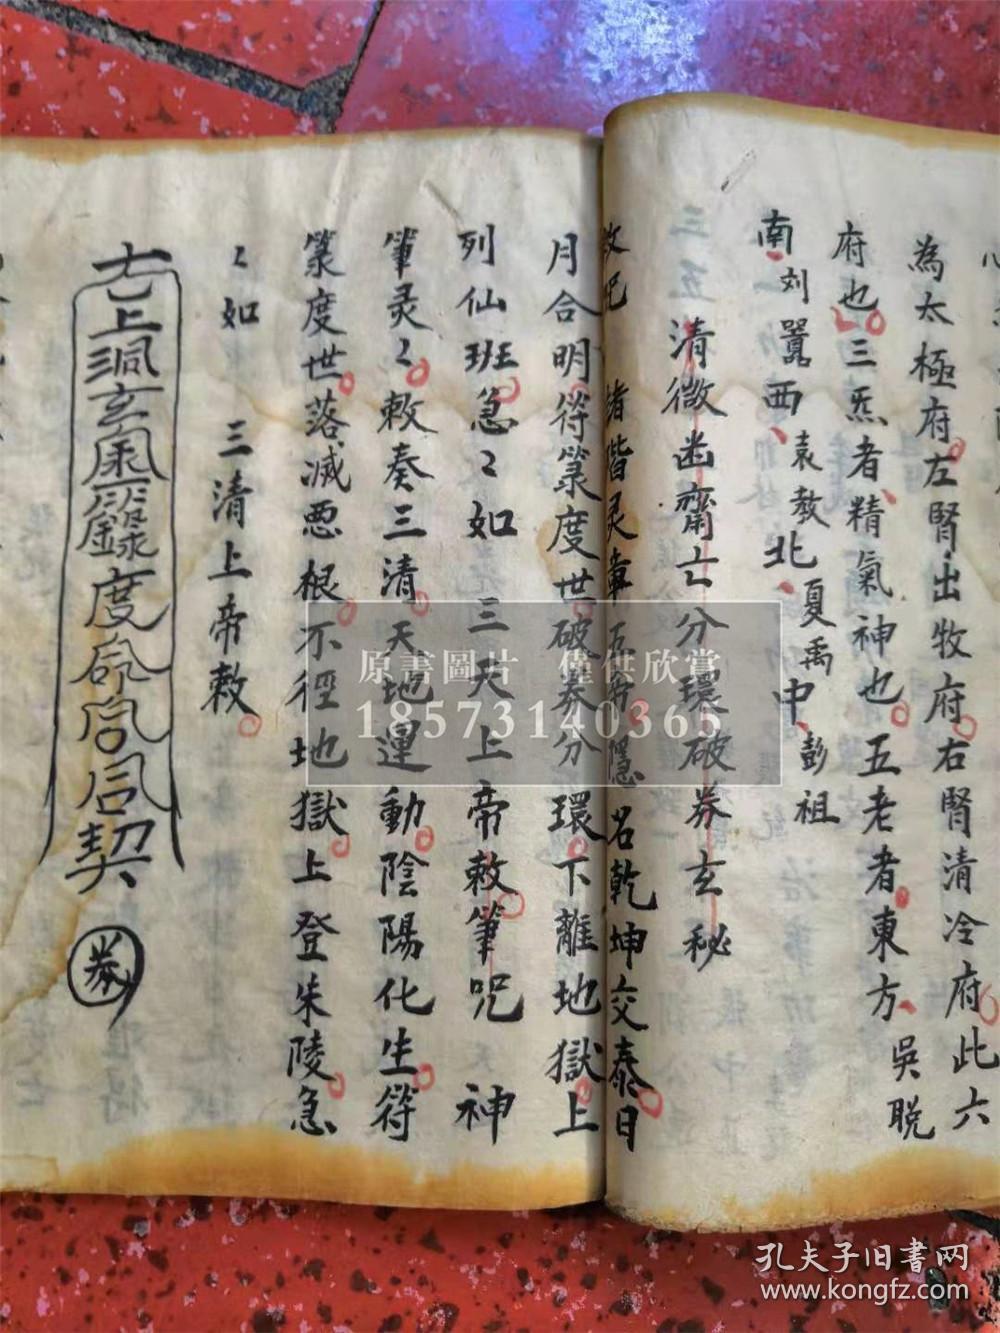 為太極府左腎出牧府右腎清冷府此六
府也三炁者精氣神也五老者東方吳睨
南刘嚣西袁教北夏禹中彭祖
清微幽齋亡分環破券玄秘
敕咒 諸階灵章五帝隱名乾坤交泰日
月合明符篆度世破券分環下離地獄上
列仙班急〻如 三天上帝敕筆咒 神
筆灵〻敕奏三清天地運動陰陽化生符
篆度世落滅恶根不徑地獄上登朱陵急
〻如 三清上帝敕
上洞玄 籙度命 同契
券
原書圖片 僅供欣賞
18573140365
孔夫子旧書网
www.kongfz.com